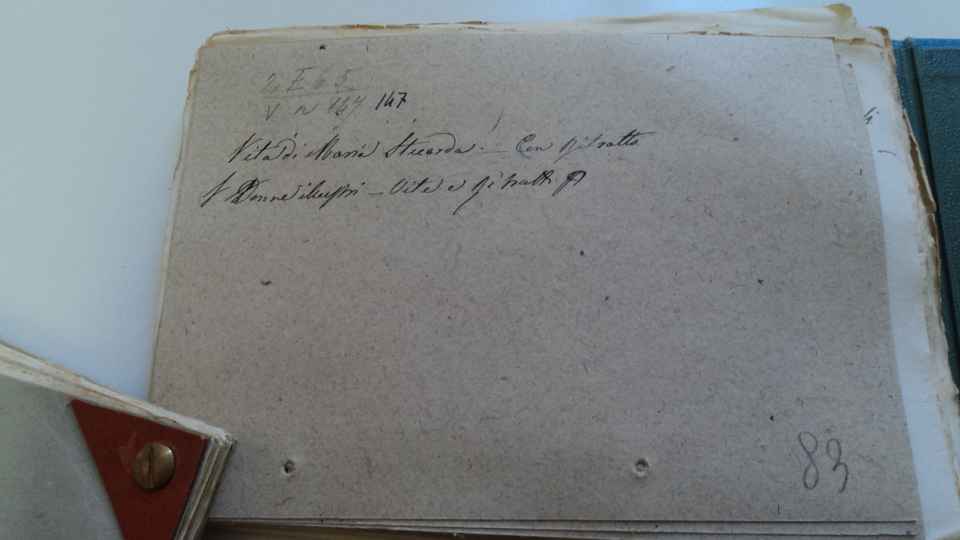 2 E 6 5
V n 147 147
Vita di Maria Stuarda. — Con Ritratto
Donne illustri — Vite e Ritratti
83